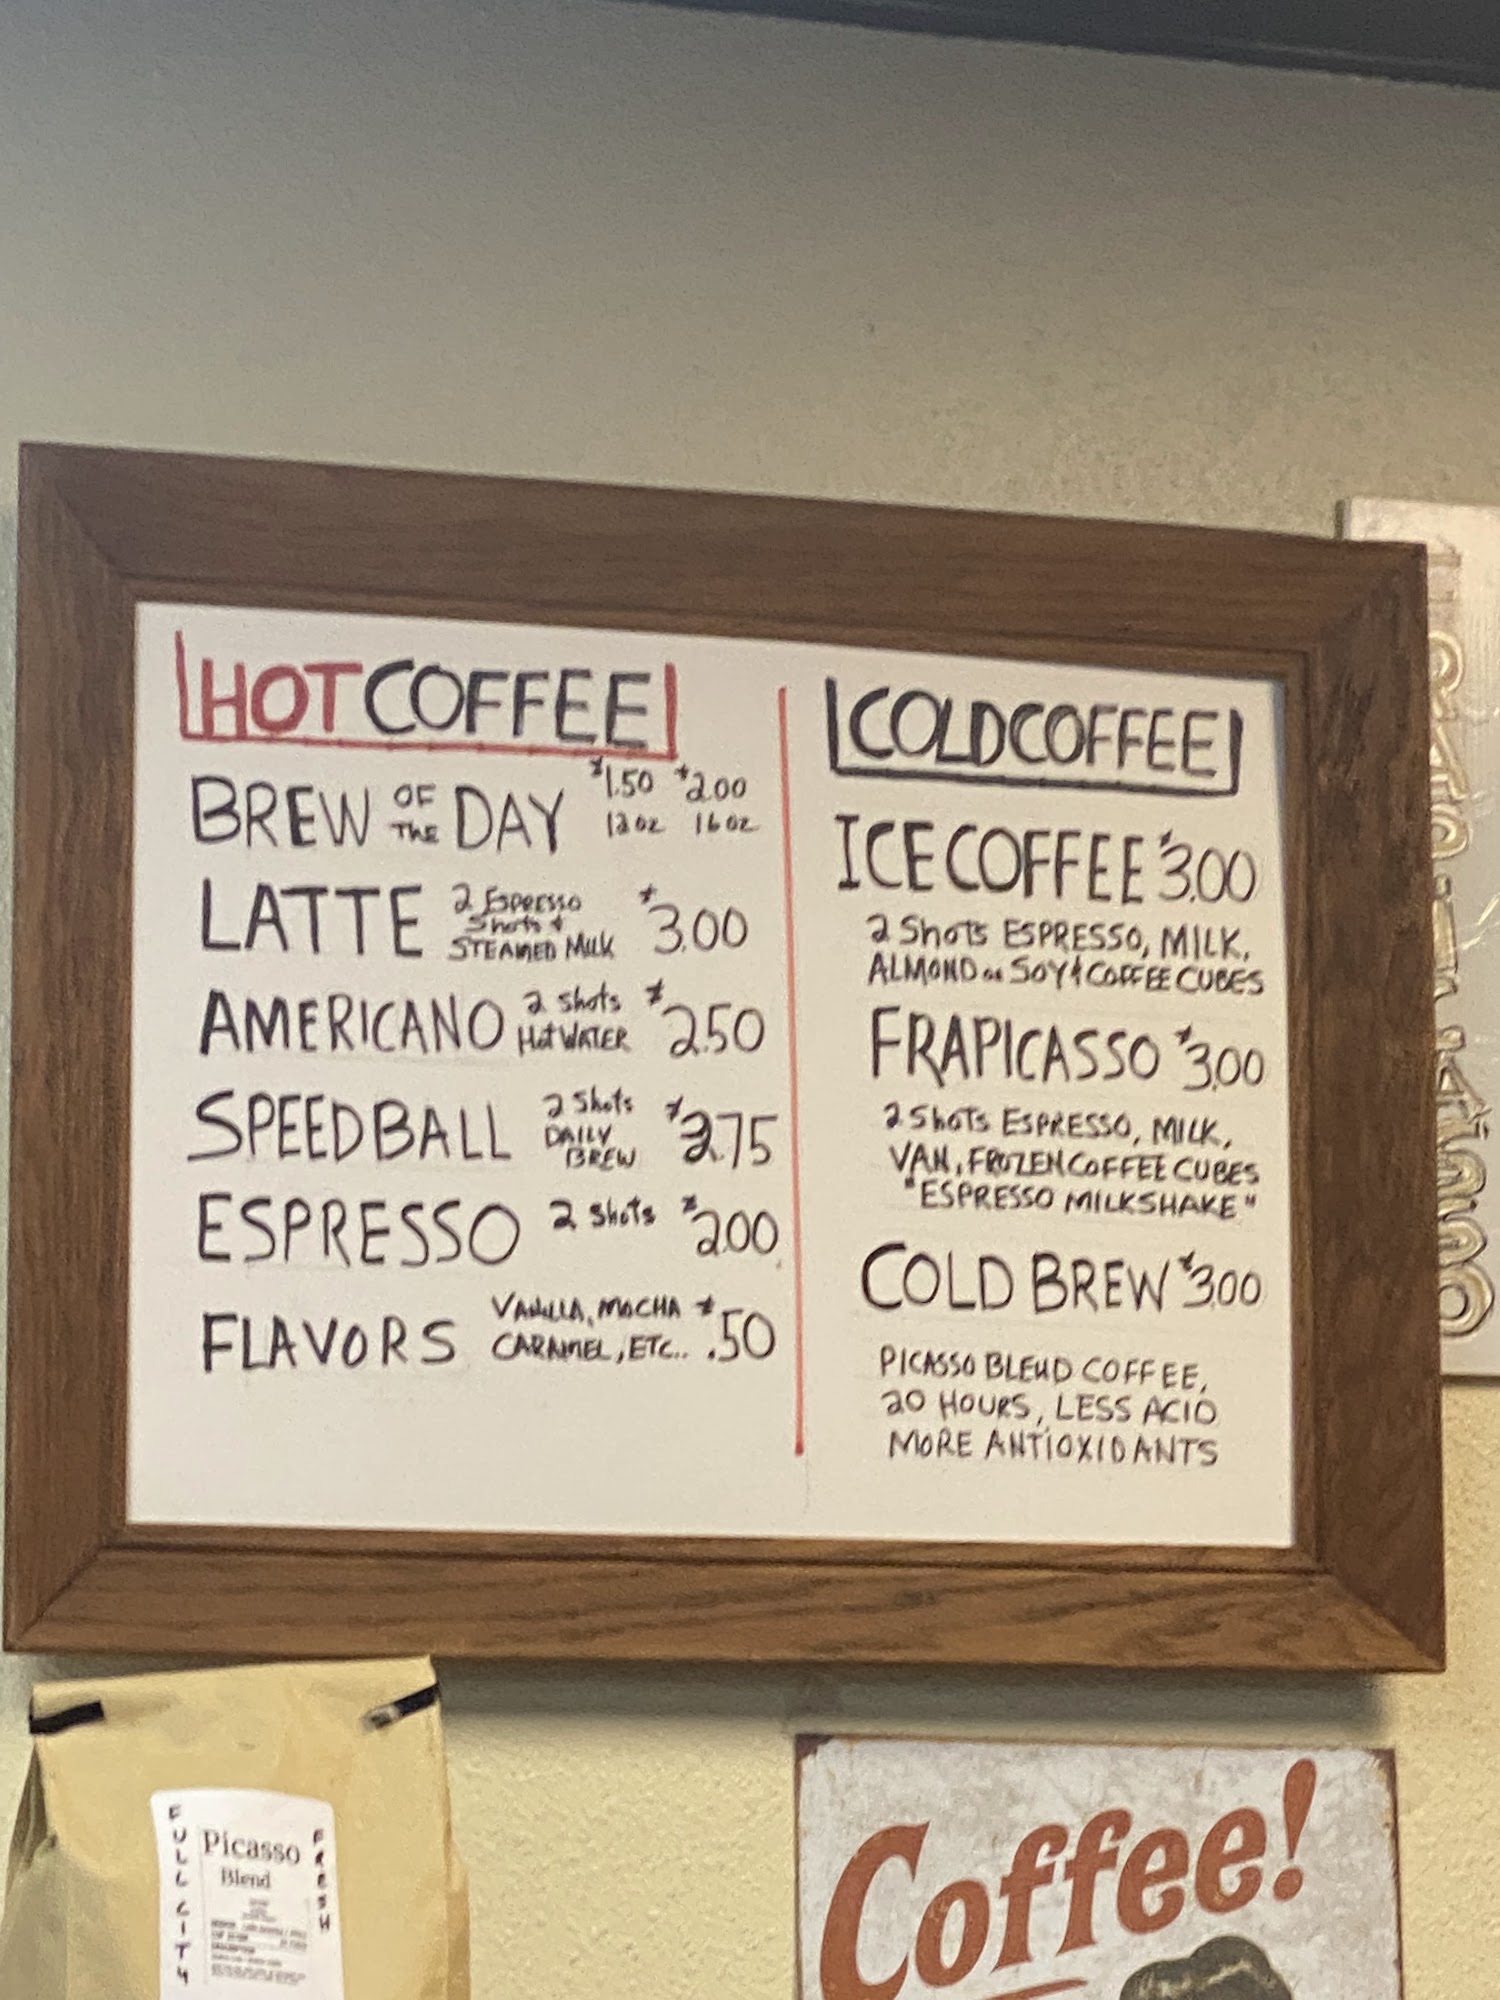 HOT COFFEE
BREW OF THE DAY $1.50 12oz $2.00 16oz
LATTE 2 ESPRESSO Shots & STEAMED MILK $3.00
AMERICANO 2 Shots Hot WATER $2.50
SPEEDBALL 2 Shots DAILY BREW $2.75
ESPRESSO 2 Shots $2.00
FLAVORS VANILLA, MOCHA CARAMEL, ETC.. $.50
COLD COFFEE
ICE COFFEE $3.00
2 Shots ESPRESSO, MILK,
ALMOND or SOY & COFFEE CUBES
FRAPICASSO $3.00
2 Shots ESPRESSO, MILK,
VAN, FROZEN COFFEE CUBES
"ESPRESSO MILKSHAKE"
COLD BREW $3.00
PICASSO BLEND COFFEE,
20 HOURS, LESS ACID
MORE ANTIOXIDANTS
FULL CITY
Picasso
Blend
FRESH
Coffee!